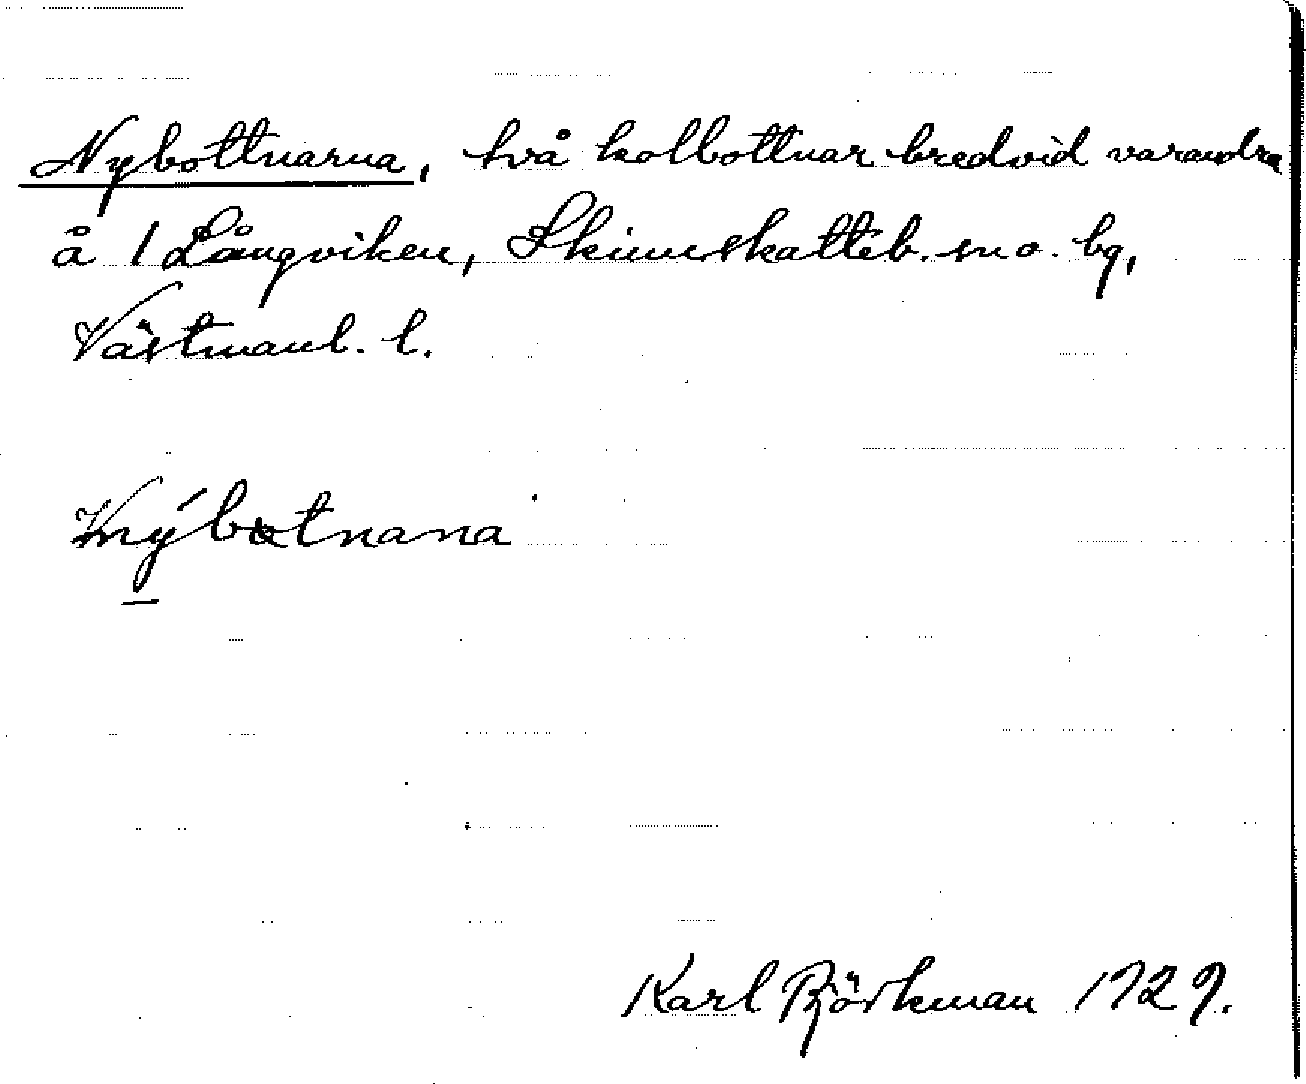 Nybottnarna, två kolbottnar bredvid varandra
å 1 Långviken, Skinnskatteb. sn o. bg,
Västmanl. l.
nýbòtnana
Karl Björkman 1929.